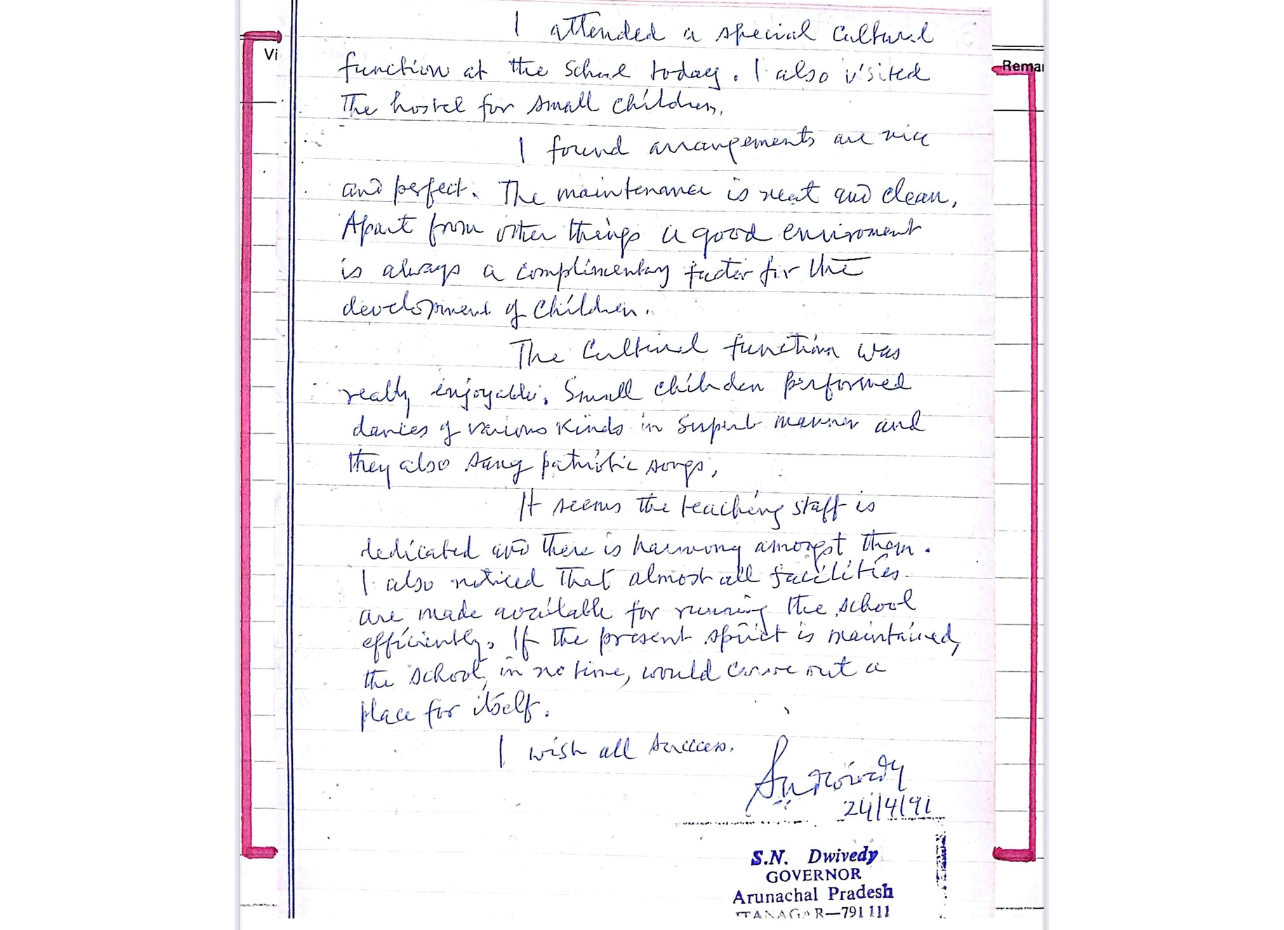 I attended a special Cultural
Vi
function at the School today. I also visited
Remar
the hostel for small children.
I found arrangements are nice
and perfect. The maintenance is neat and clean.
Apart from other things a good enviroment
is always a complimentary factor for the
development of children.
The Cultural function was
really enjoyable. Small children performed
dances of various kinds in superb manner and
they also sang patriotic songs.
It seems the teaching staff is
dedicated and there is harmony amongst them.
I also noticed that almost all facilities
are made available for running the school
efficiently. If the present spirit is maintained,
the school, in no time, would carve out a
place for itself.
I wish all success.
24/4/91
S.N. Dwivedy
GOVERNOR
Arunachal Pradesh
ITANAGAR—791 111